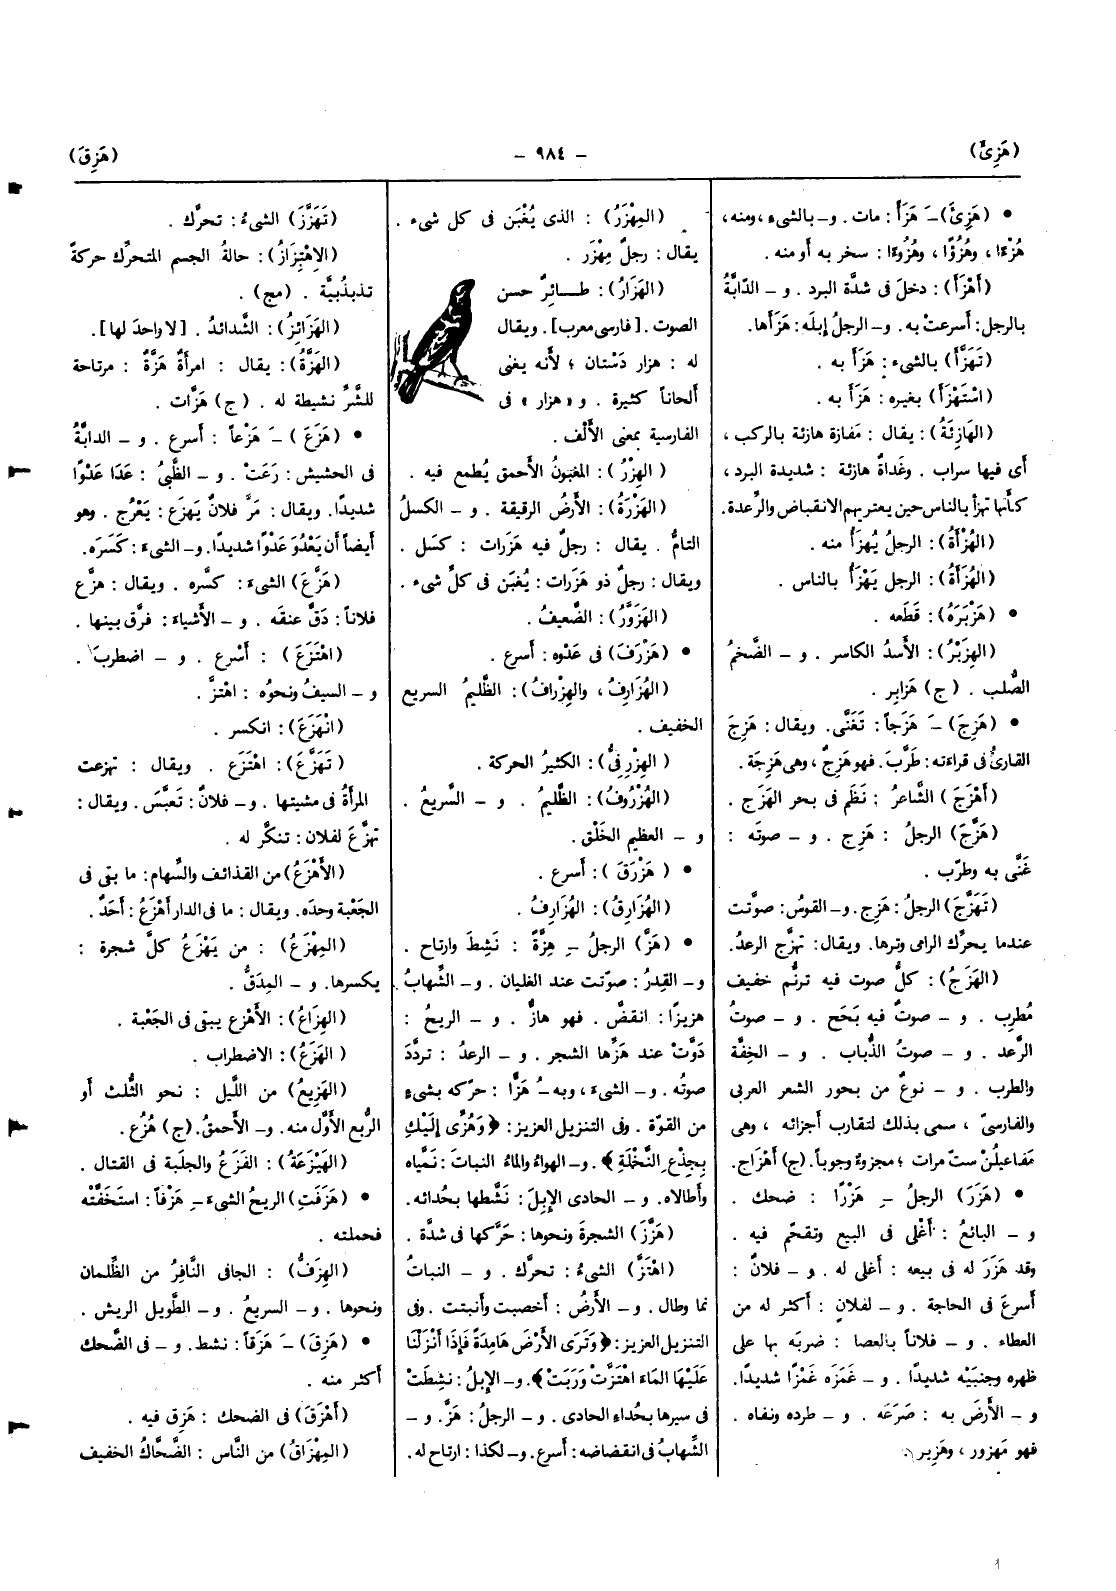 (هَزِئَ)
- ٩٨٤ -
(هَزِقَ)
• (هَزِئَ) ـَ هَزَأً : مات . و ـ بالشىء ، ومنه ،
هُزْءًا ، وهُزُؤًا ، وهُزُوءًا : سخر به أو منه .
(أَهْزَأَ) : دخلَ فى شدَّة البرد . و ـ الدّابَّةُ
بالرجل : أسرعتْ به . و ـ الرجلُ إبلَه : هَزَأها .
(تَهَزَّأَ) بالشىء : هَزَأ به .
(اسْتَهْزَأَ) بغيره : هَزَأ به .
(الهَازِئَةُ) : يقال : مَفازة هازئة بالركب ،
أى فيها سراب . وغَداةٌ هازئة : شديدة البرد ،
كأنها تهزأ بالناس حين يعتريهم الانقباض والرِّعدة .
(الهُزْأَةُ) : الرجلُ يُهزأُ منه .
(الهُزَأَةُ) : الرجل يَهْزَأُ بالناس .
• (هَزْبَرَهُ) : قَطَعه .
(الهِزَبْرُ) : الأَسدُ الكاسر . و ـ الضَّخمُ
الصُّلب . (ج) هَزابِر .
• (هَزِجَ) ـَ هَزَجاً : تَغَنَّى . ويقال : هَزِجَ
القارئُ فى قراءته : طَرَّبَ . فهو هَزِجٌ ، وهى هَزِجَة .
(أَهْزَجَ) الشَّاعرُ : نَظَم فى بحر الهَزَج .
(هَزَّجَ) الرجلُ : هَزِج . و ـ صوتَه :
غَنَّى به وطرّب .
(تَهَزَّجَ) الرجلُ : هَزِج . و ـ القوسُ : صوَّتت
عندما يحرِّك الرامى وترها . ويقال : تهزَّج الرعدُ .
(الهَزَجُ) : كلُّ صوت فيه ترنُّم خفيف
مُطرِب . و ـ صوتٌ فيه بَحَح . و ـ صوتُ
الرَّعد . و ـ صوتُ الذُّباب . و ـ الخِفَّة
والطرب . و ـ نوعٌ من بحور الشعر العربى
والفارسىّ ، سمى بذلك لتقارب أجزائه ، وهى
مَفاعيلُنْ ستّ مرات ؛ مجزوءٌ وجوباً . (ج) أَهْزَاج .
• (هَزَرَ) الرجلُ ـِ هَزْرًا : ضحك .
و ـ البائعُ : أَغْلى فى البيع وتقحّم فيه .
وقد هَزَرَ له فى بيعه : أغلى له . و ـ فلانٌ :
أسرعَ فى الحاجة . و ـ لفلانٍ : أكثر له من
العطاء . و ـ فلاناً بالعصا : ضربَه بها على
ظهره وجنبَيْه شديدًا . و ـ غَمَزَه غَمْزًا شديدًا .
و ـ الأَرضَ به : صَرَعَه . و ـ طرده ونفاه .
فهو مَهزور ، وهَزِير .
(المِهْزَرُ) : الذى يُغْبَن فى كل شىء .
يقال : رجلٌ مِهْزَر .
(الهَزَارُ) : طــائِرٌ حسن
الصوت . [فارسى معرب] . ويقال
له : هزار دَسْتان ؛ لأَنه يغنى
ألحاناً كثيرة . و «هزار» فى
الفارسية بمعنى الأَلْف .
(الهِزْرُ) : المغبُونُ الأَحمق يُطمع فيه .
(الهَزْرَةُ) : الأَرضُ الرقيقة . و ـ الكسلُ
التامُّ . يقال : رجلٌ فيه هَزَرات : كسَل .
ويقال : رجلٌ ذو هَزَرات : يُغبَن فى كلِّ شىء .
(الهَزَوَّرُ) : الضَّعيفُ .
• (هَزْرَفَ) فى عَدْوه : أسرع .
(الهُزَارِفُ ، والهِزْرافُ) : الظَّليمُ السريع
الخفيف .
(الهِزْرِفىُّ) : الكثيرُ الحركة .
(الهُزْرُوفُ) : الظَّليمُ . و ـ السَّريعُ .
و ـ العظيم الخَلْق .
• (هَزْرَقَ) : أسرع .
(الهُزَارِقُ) : الهُزَارِفُ .
• (هَزَّ) الرجلُ ـِ هِزَّةً : نَشِطَ وارتاح .
و ـ القِدرُ : صوّتت عند الغليان . و ـ الشِّهابُ
هزيزًا : انقضَّ . فهو هازٌّ . و ـ الريحُ :
دَوَّتْ عند هَزِّها الشجر . و ـ الرعدُ : تردَّدَ
صوتُه . و ـ الشىءَ ، وبه ـُ هَزًّا : حرّكه بشىءٍ
من القوّة . وفى التنزيل العزيز : ﴿وَهُزِّى إِلَيْكِ
بِجِذْعِ النَّخْلَةِ﴾ . و ـ الهواءُ والماءُ النباتَ : نَمَّياه
وأطالاه . و ـ الحادى الإِبلَ : نَشَّطها بحُدائه .
(هَزَّزَ) الشجرةَ ونحوها : حَرَّكها فى شدَّة .
(اهْتَزَّ) الشىءُ : تحرّك . و ـ النباتُ
نما وطال . و ـ الأَرضُ : أخصبت وأنبتت . وفى
التنزيل العزيز : ﴿وَتَرَى الأَرْضَ هَامِدَةً فَإِذَا أَنْزَلْنَا
عَلَيْهَا المَاءَ اهْتَزَّتْ وَرَبَتْ﴾ . و ـ الإِبلُ : نشِطَتْ
فى سيرها بحُداء الحادى . و ـ الرجلُ : هَزَّ . و ـ
الشِّهابُ فى انقضاضه : أسرع . و ـ لكذا : ارتاح له .
(تَهَزَّزَ) الشىءُ : تحرَّك .
(الاِهْتِزَازُ) : حالةُ الجسم المتحرِّك حركةً
تذبذُبيَّة . (مج) .
(الهَزَائِزُ) : الشَّدائدُ . [لا واحدَ لها] .
(الهَزَّةُ) : يقال : امرأةٌ هَزَّةٌ : مرتاحة
للشَّرِّ نشيطة له . (ج) هَزَّات .
• (هَزَعَ) ـَ هَزْعاً : أسرع . و ـ الدابَّةُ
فى الحشيش : رَعَتْ . و ـ الظَّبىُ : عَدَا عَدْوًا
شديدًا . ويقال : مَرَّ فلانٌ يَهزَع : يَعْرُج . وهو
أيضاً أن يَعْدُوَ عَدْوًا شديدًا . و ـ الشىءَ : كَسَرَه .
(هَزَّعَ) الشىءَ : كسَّره . ويقال : هزَّع
فلاناً : دَقَّ عنقَه . و ـ الأَشياءَ : فرَّق بينها .
(اهْتَزَعَ) : أسْرع . و ـ اضطربَ .
و ـ السيفُ ونحوُه : اهْتزَّ .
(انْهَزَعَ) : انكسر .
(تَهَزَّعَ) : اهْتَزَع . ويقال : تهزعت
المرأةُ فى مشيتها . و ـ فلانٌ : تَعبَّسَ . ويقال :
تهزَّعَ لفلان : تنكَّر له .
(الأَهْزَعُ) من القذائف والسِّهام : ما بقى فى
الجَعْبة وحدَه . ويقال : ما فى الدار أهْزَعُ : أَحَدٌ .
(المِهْزَعُ) : من يَهْزَعُ كلَّ شجرة :
يكسرها . و ـ المِدَقُّ .
(الهِزَاعُ) : الأَهْزع يبقى فى الجَعْبة .
(الهَزَعُ) : الاضطراب .
(الهَزِيعُ) من اللَّيل : نحو الثُّلث أو
الرُّبع الأَوَّل منه . و ـ الأَحمقُ . (ج) هُزُع .
(الهَيْزَعَةُ) : الفَزَعُ والجلَبة فى القتال .
• (هَزَفَتِ) الريحُ الشىءَ ـِ هَزْفاً : استَخَفَّتْه
فحملته .
(الهِزَفُّ) : الجافى النَّافِرُ من الظِّلمان
ونحوها . و ـ السريعُ . و ـ الطَّويل الريش .
• (هَزِقَ) ـَ هَزَقاً : نشط . و ـ فى الضَّحك
أكثر منه .
(أَهْزَقَ) فى الضحك : هَزِق فيه .
(المِهْزَاقُ) من النَّاس : الضَّحّاكُ الخفيف